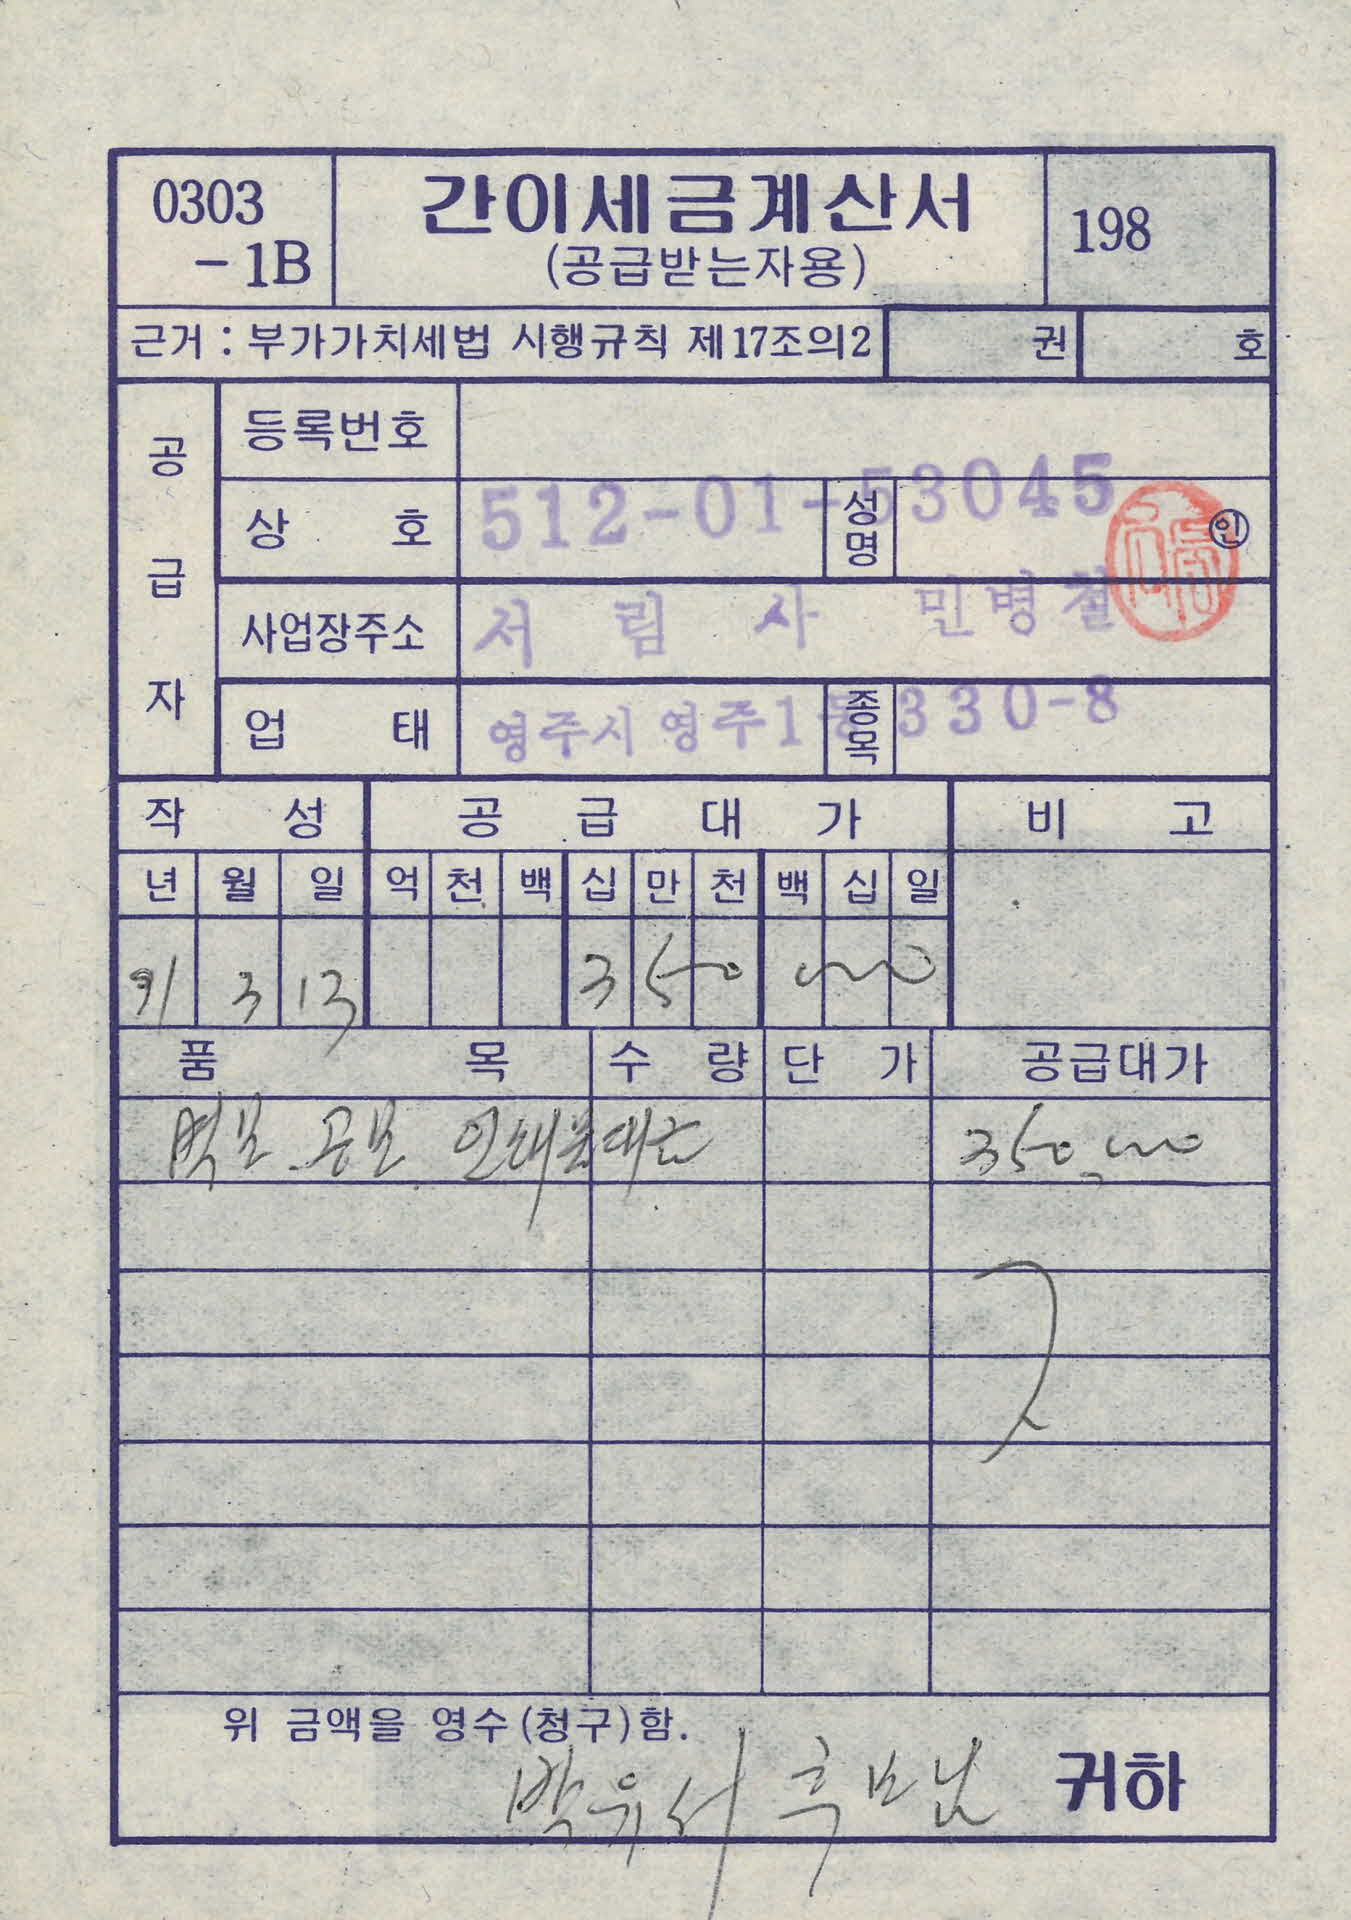 0303
-1B
간이세금계산서
(공급받는자용)
198
근거 : 부가가치세법 시행규칙 제17조의2
권 호
공급자
등록번호
512-01-53045
상 호
성명
인
사업장주소
서 림 사 민병철
업 태
영주시 영주1동 330-8
종목
작 성 공 급 대 가 비 고
년 월 일 억 천 백 십 만 천 백 십 일
91 3 13 350 000
품 목 수 량 단 가 공급대가
벽보 공보 인쇄물대금 350,000
위 금액을 영수(청구)함.
박유서 후보님 귀하